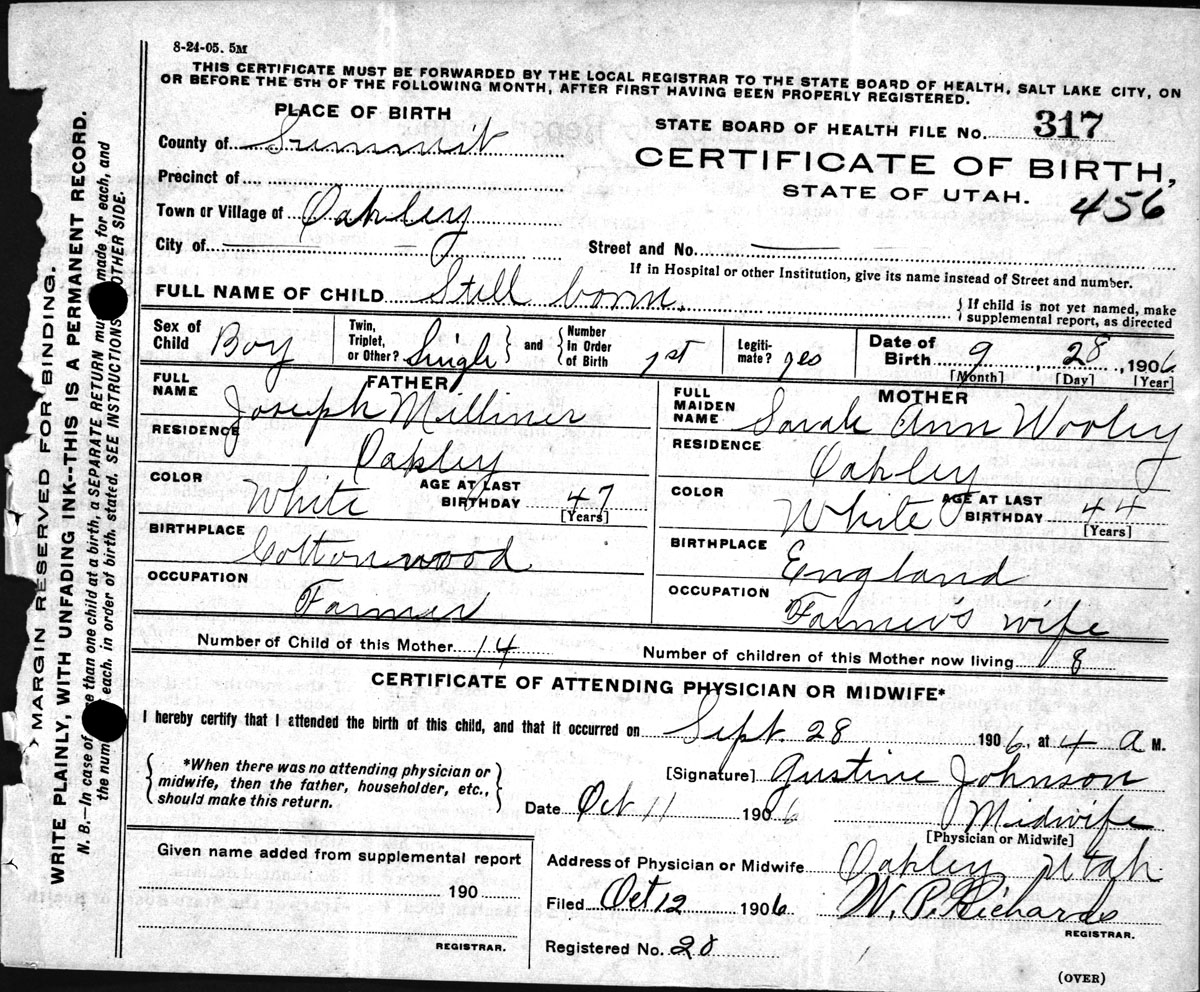 8-24-05. 5M
THIS CERTIFICATE MUST BE FORWARDED BY THE LOCAL REGISTRAR TO THE STATE BOARD OF HEALTH, SALT LAKE CITY, ON
OR BEFORE THE 5TH OF THE FOLLOWING MONTH, AFTER FIRST HAVING BEEN PROPERLY REGISTERED.
PLACE OF BIRTH
County of Summit
Precinct of
Town or Village of Oakley
City of
STATE BOARD OF HEALTH FILE No. 317
CERTIFICATE OF BIRTH,
STATE OF UTAH.
456
Street and No.
If in Hospital or other Institution, give its name instead of Street and number.
FULL NAME OF CHILD Still born.
{ If child is not yet named, make
supplemental report, as directed
Sex of Child Boy
Twin, Triplet, or Other? Single } and { Number In Order of Birth 1st
Legiti-mate? yes
Date of Birth 9, 28, 1906
[Month] [Day] [Year]
FATHER
FULL NAME Joseph Milliner
RESIDENCE Oakley
COLOR White AGE AT LAST BIRTHDAY 47
[Years]
BIRTHPLACE Cottonwood
OCCUPATION Farmer
MOTHER
FULL MAIDEN NAME Sarah Ann Wooley
RESIDENCE Oakley
COLOR White AGE AT LAST BIRTHDAY 44
[Years]
BIRTHPLACE England
OCCUPATION Farmer's wife
Number of Child of this Mother 14 Number of children of this Mother now living 8
CERTIFICATE OF ATTENDING PHYSICIAN OR MIDWIFE*
I hereby certify that I attended the birth of this child, and that it occurred on Sept. 28 1906, at 4 A M.
{ *When there was no attending physician or
midwife, then the father, householder, etc.,
should make this return. }
[Signature] Gustine Johnson
Date Oct 11 1906 Midwife
[Physician or Midwife]
Given name added from supplemental report
190
REGISTRAR.
Address of Physician or Midwife Oakley, Utah
Filed Oct 12 1906 W. P. Richards
REGISTRAR.
Registered No. 28
(OVER)
MARGIN RESERVED FOR BINDING.
WRITE PLAINLY, WITH UNFADING INK--THIS IS A PERMANENT RECORD.
N. B.—In case of than one child at a birth, a SEPARATE RETURN made for each, and
the each, in order of birth, stated. SEE INSTRUCTIONS OTHER SIDE.